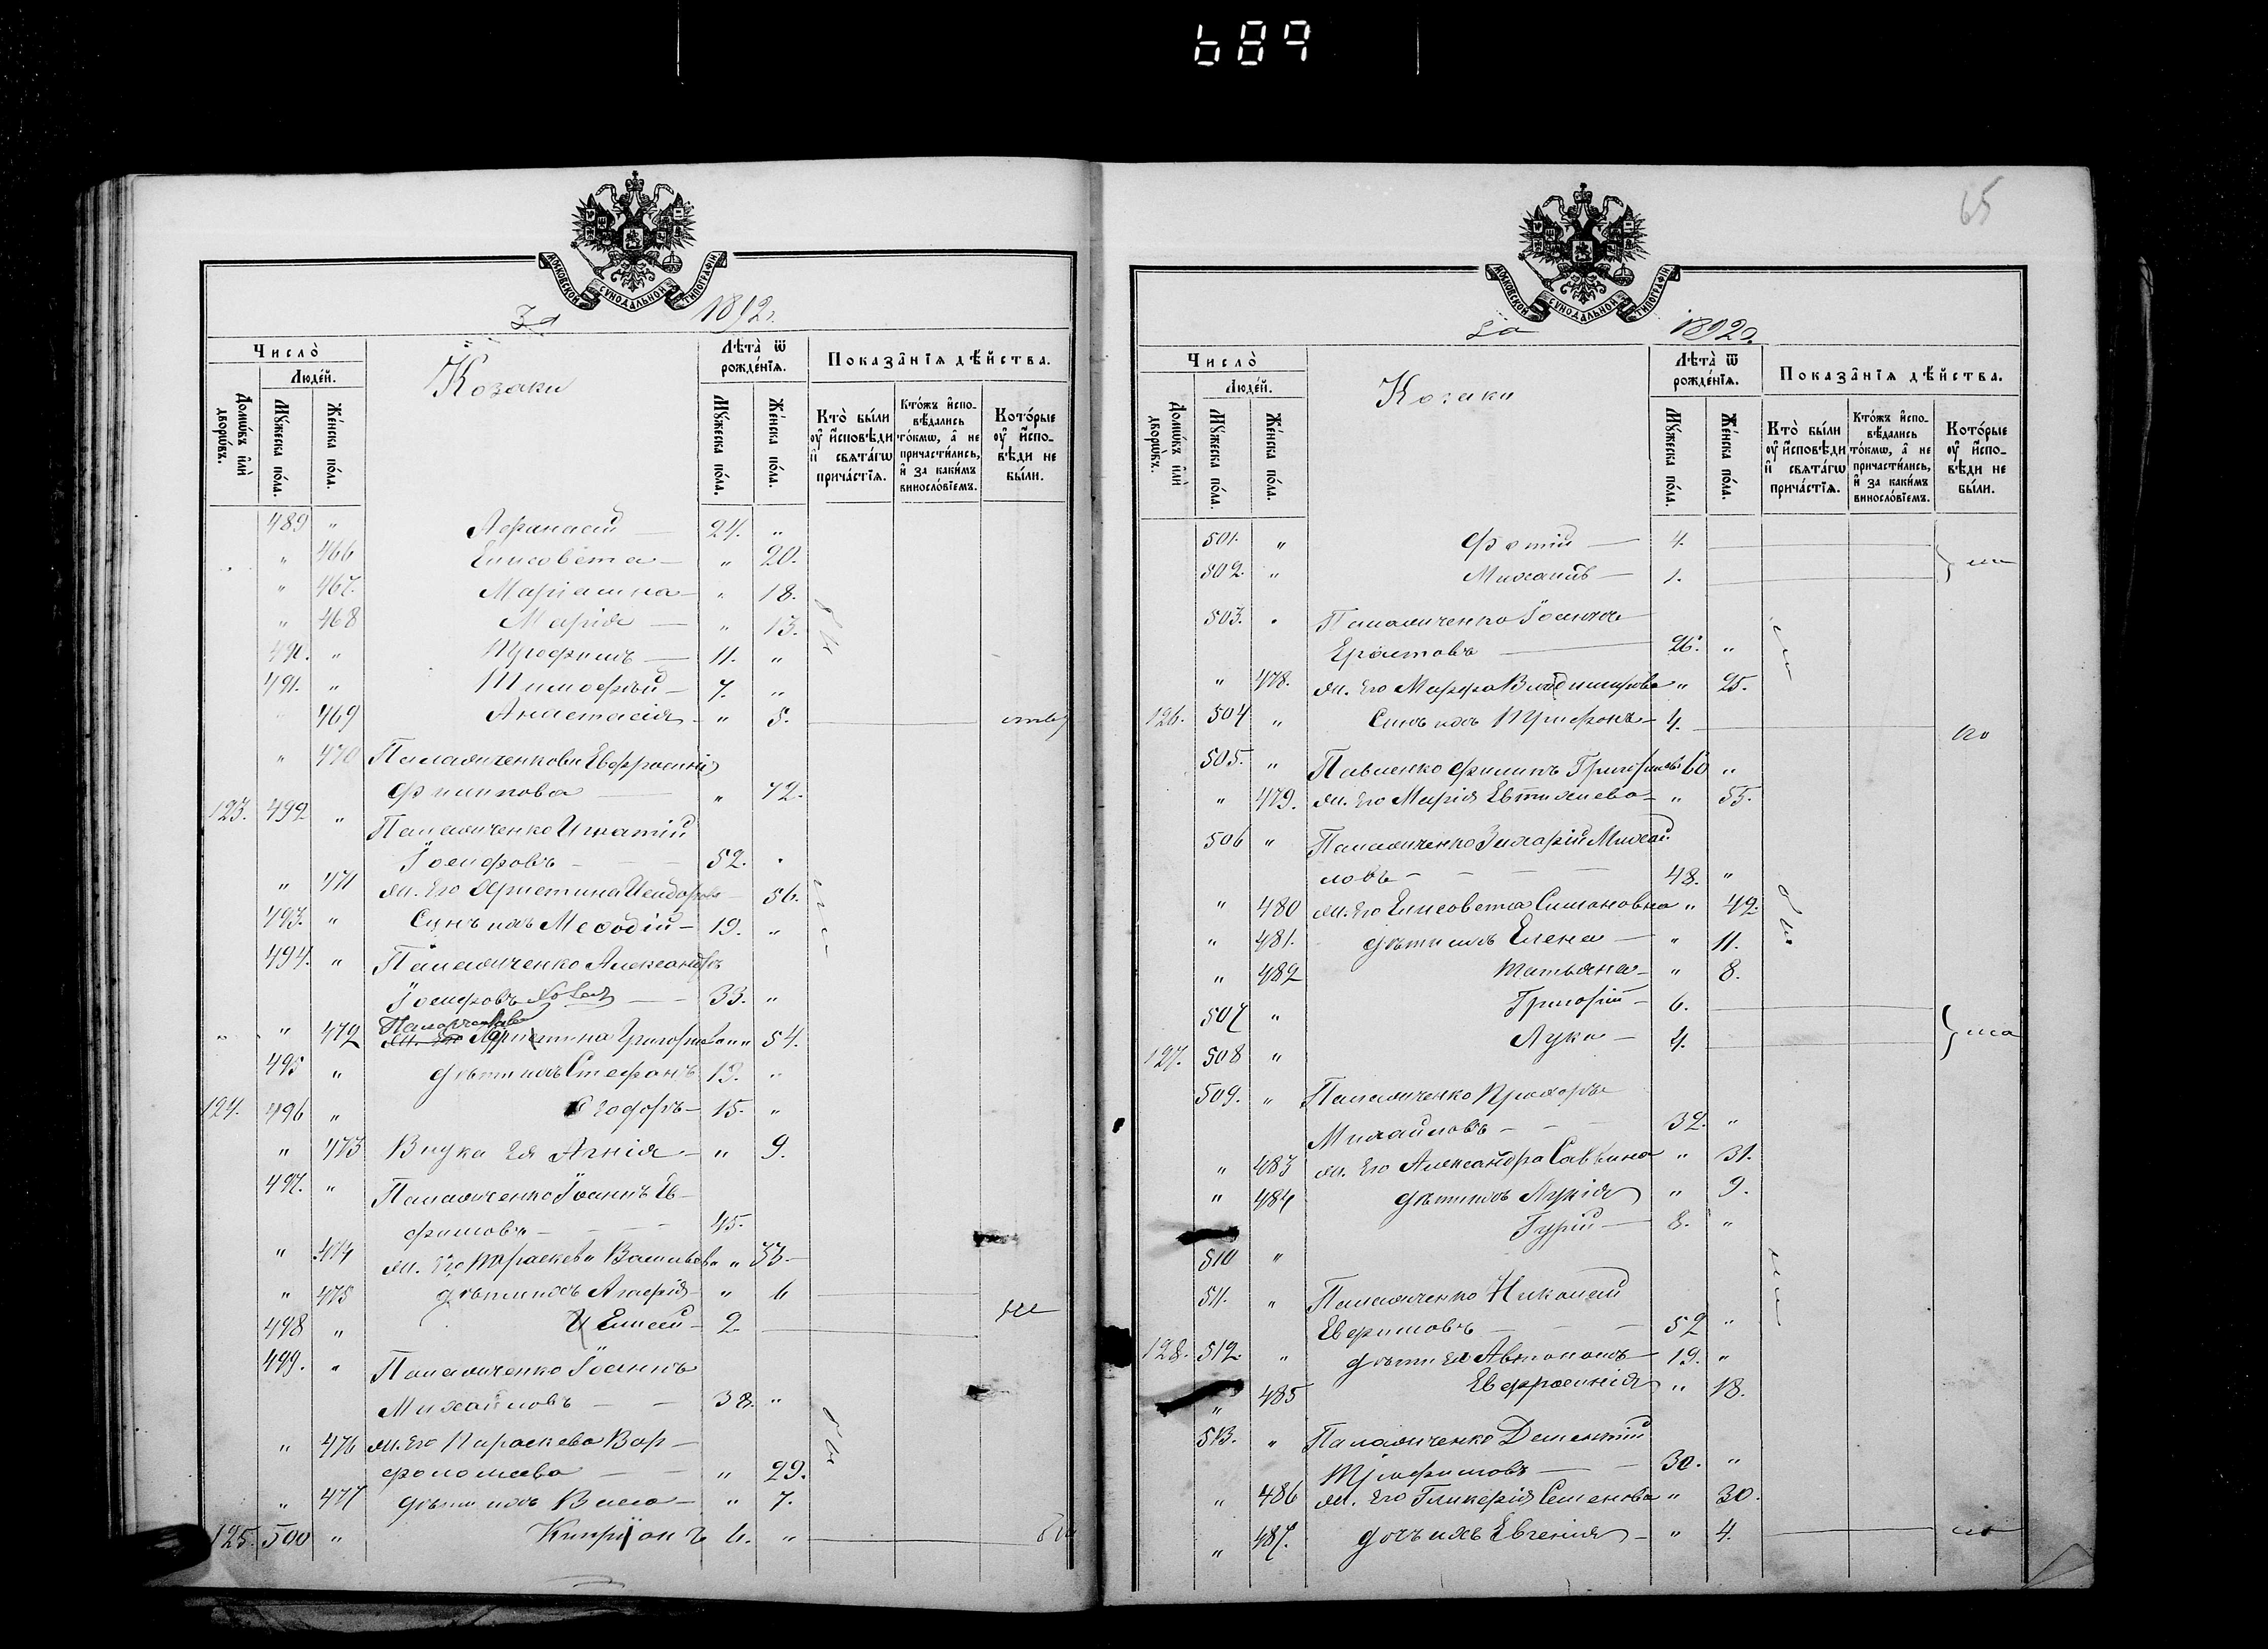 689
МОСКОВСКОЙ СѴНОДАЛЬНОЙ ТИПОГРАФІИ
За 1892 г.
Число̀
Людей.
Домѡвъ и҆лѝ дворѡвъ.
Мꙋжеска по́ла.
Же́нска по́ла.
Козаки
Лѣта̀ ѿ рожде́нїѧ.
Мꙋжеска по́ла.
Же́нска по́ла.
Показа̑нїѧ дѣ́йства.
Кто̀ бы́ли ᲂу҆ и҆сповѣди и҆ свѧта́гѡ прича́стїѧ.
Кто́жъ и҆спо- вѣдались то́кмѡ, а҆ не причасти́лись, и҆ за каки́мъ виносло́вїемъ.
Кото́рые ᲂу҆ и҆спо- вѣди не бы́ли.
489 " Афанасій — 24. "
" 466 Елисовета — " 20.
" 467. Маріамна — " 18.
" 468 Марія — " 13.
490. " Трофимъ — 11. "
491. " Тимофѣй — 7. "
469 Анастасія — " 5.
" 470 Паламиченкова Евфросинія
Филипова — " 72.
123. 492 " Паламиченко Игнатій
Іосифовъ — 52. "
" 471 ж. его Христина Исидорова 56.
493. " Сынъ ихъ Меѳодій — 19. "
494. " Паламиченко Александръ
Іосифовъ — 33. "
" " 472 Григорьева " 54.
495 " дѣти ихъ Стефанъ 19. "
124. 496 " Ѳеодоръ — 15. "
" 473 Внука ея Агнія — " 9.
497. " Паламиченко Іоаннъ Ев-
фимовъ — 45.
" 474 ж. его Параскева Васильева " 33 —
" 475 дѣти ихъ Агафія — " 6
498 " Елисей — 2.
499. " Паламиченко Іоаннъ
Михайловъ — 38. "
" 476 ж. его Параскева Вар-
фоломеева — " 29.
" 477 дѣти ихъ Васса — " 7.
125. 500 " Кипріанъ 4. "
65
МОСКОВСКОЙ СѴНОДАЛЬНОЙ ТИПОГРАФІИ
За 1892 г.
Число̀
Людей.
Домѡвъ и҆лѝ дворѡвъ.
Мꙋжеска по́ла.
Же́нска по́ла.
Козаки
Лѣта̀ ѿ рожде́нїѧ.
Мꙋжеска по́ла.
Же́нска по́ла.
Показа̑нїѧ дѣ́йства.
Кто̀ бы́ли ᲂу҆ и҆сповѣди и҆ свѧта́гѡ прича́стїѧ.
Кто́жъ и҆спо- вѣдались то́кмѡ, а҆ не причасти́лись, и҆ за каки́мъ виносло́вїемъ.
Кото́рые ᲂу҆ и҆спо- вѣди не бы́ли.
501. " Фотій — 4.
502. " Михаилъ — 1.
503. " Паламиченко Іоаннъ
Ерастовъ — 26. "
" 478. ж. его Марфа Владимирова " 25.
126. 504 " Сынъ ихъ Трифонъ — 4.
505. " Павленко Филипъ Григорьевъ 60 "
" 479. ж. его Марія Евтихиева — " 55.
506 " Паламиченко Захарій Михай
ловъ — 48. "
" 480 ж. его Елисовета Симоновна " 42.
" 481. дѣти ихъ Елена — " 11.
" 482 Татьяна — " 8.
507 " Григорій — 6.
127. 508 " Лука — 4.
509. " Паламиченко Прохоръ
Михайловъ — 37. "
" 483 ж. его Александра Саввина " 31.
" 484 дѣти ихъ Лукія " 9.
510 " Гурій — 8. "
511. " Паламиченко Николай
Евфимовъ — 52 "
128. 512. " дѣти его Автономъ — 19. "
" 485 Евфросинія " 18.
513. " Паламиченко Дементій
Трофимовъ — 30. "
" 486 ж. его Гликерія Семенова " 30.
" 487. дочь ихъ Евгенія — " 4.